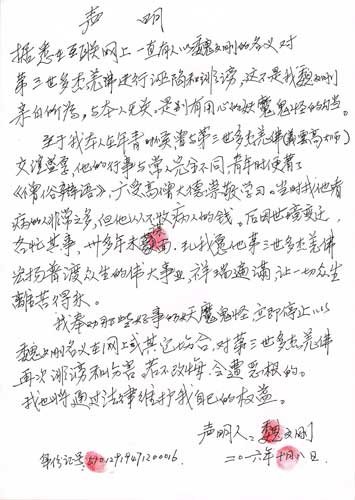 声明
据悉在互联网上一直有人以魏文刚的名义对
第三世多杰羌佛进行诬陷和诽谤,这不是我魏文刚
亲自的所为,与本人无关,是别有用心的妖魔鬼怪的勾当。
至于我本人在年青时代曾与第三世多杰羌佛(义云高大师)
交谊甚笃,他的行事与常人完全不同,青年时便著了
《僧俗辩语》,广受高僧大德崇敬学习。当时找他看
病的人非常之多,但他从不收病人的钱。后因世境变迁,
各忙其事,卅多年未
宏扬普渡众生的伟大事业,祥瑞遍满,让一切众生
离苦得永。
我奉劝那些好事的妖魔鬼怪,立即停止以
魏文刚名义在网上或其它场合,对第三世多杰羌佛
再次诽谤和伤害。若不改悔,会遭恶报的。
我也将通过法律维护我自己的权益。
声明人:魏文刚
身份证号:51012919471200016
二0一六年十月八日